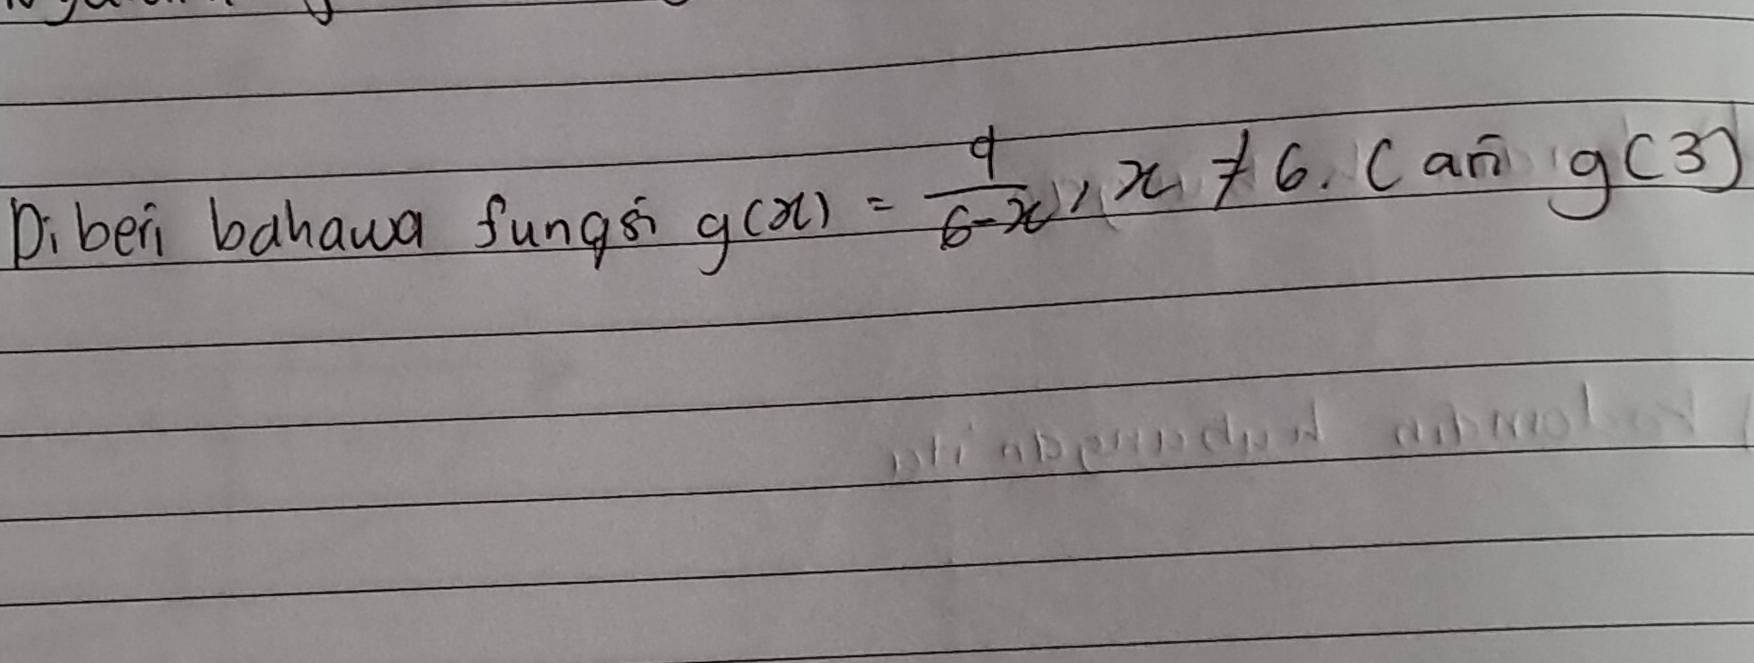 Diberi bahawa fungsi g(x) = 9/(6-x), x ≠ 6. Cari g(3)